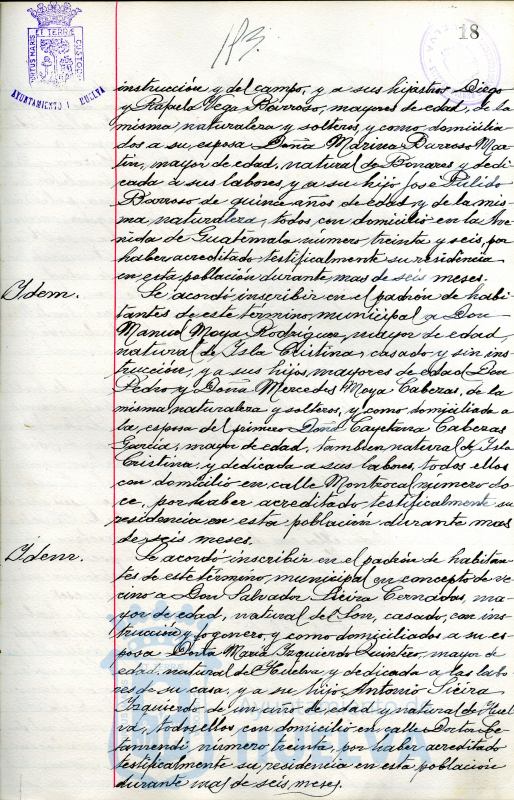 18
113.
PORTUS MARIS ET TERRÆ CUSTODIA
AYUNTAMIENTO HUELVA
instrucción y del campo, y a sus hijastros Diego
y Rafaela Vega Barroso, mayores de edad, de la
misma naturaleza y solteros, y como domicilia-
dos a su esposa Doña Marina Barroso Mar-
tin, mayor de edad, natural de Bonares y dedi-
cada a sus labores, y a su hijo José Pulido
Barroso de quince años de edad y de la mis-
ma naturaleza, todos con domicilio en la Ave-
nida de Guatemala número treinta y seis, por
haber acreditado testificalmente su residencia
en esta población durante mas de seis meses.
Idem. Se acordó inscribir en el padrón de habi-
tantes de este término municipal a Don
Manuel Moya Rodríguez, mayor de edad,
natural de Isla Cristina, casado y sin ins-
trucción, y a sus hijos, mayores de edad Don
Pedro y Doña Mercedes Moya Cabezas, de la
misma naturaleza y solteros, y como domiciliada a
la esposa del primero Doña Cayetana Cabezas
García, mayor de edad, tambien natural de Isla
Cristina y dedicada a sus labores, todos ellos
con domicilio en calle Montrocal número do-
ce, por haber acreditado testificalmente su
residencia en esta población durante mas
de seis meses.
Idem. Se acordó inscribir en el padrón de habitan-
tes de este término municipal en concepto de ve-
cino a Don Salvador Sieira Cernadas, ma-
yor de edad, natural del Son, casado, con ins-
trucción y fogonero, y como domiciliados a su es-
posa Doña María Izquierdo Quintero, mayor de
edad, natural de Huelva y dedicada a las labo-
res de su casa, y a su hijo Antonio Sieira
Izquierdo de un año de edad y natural de Huel-
va, todos ellos con domicilio en calle Doctor Le-
tamendi número treinta, por haber acreditado
testificalmente su residencia en esta población
durante mas de seis meses.